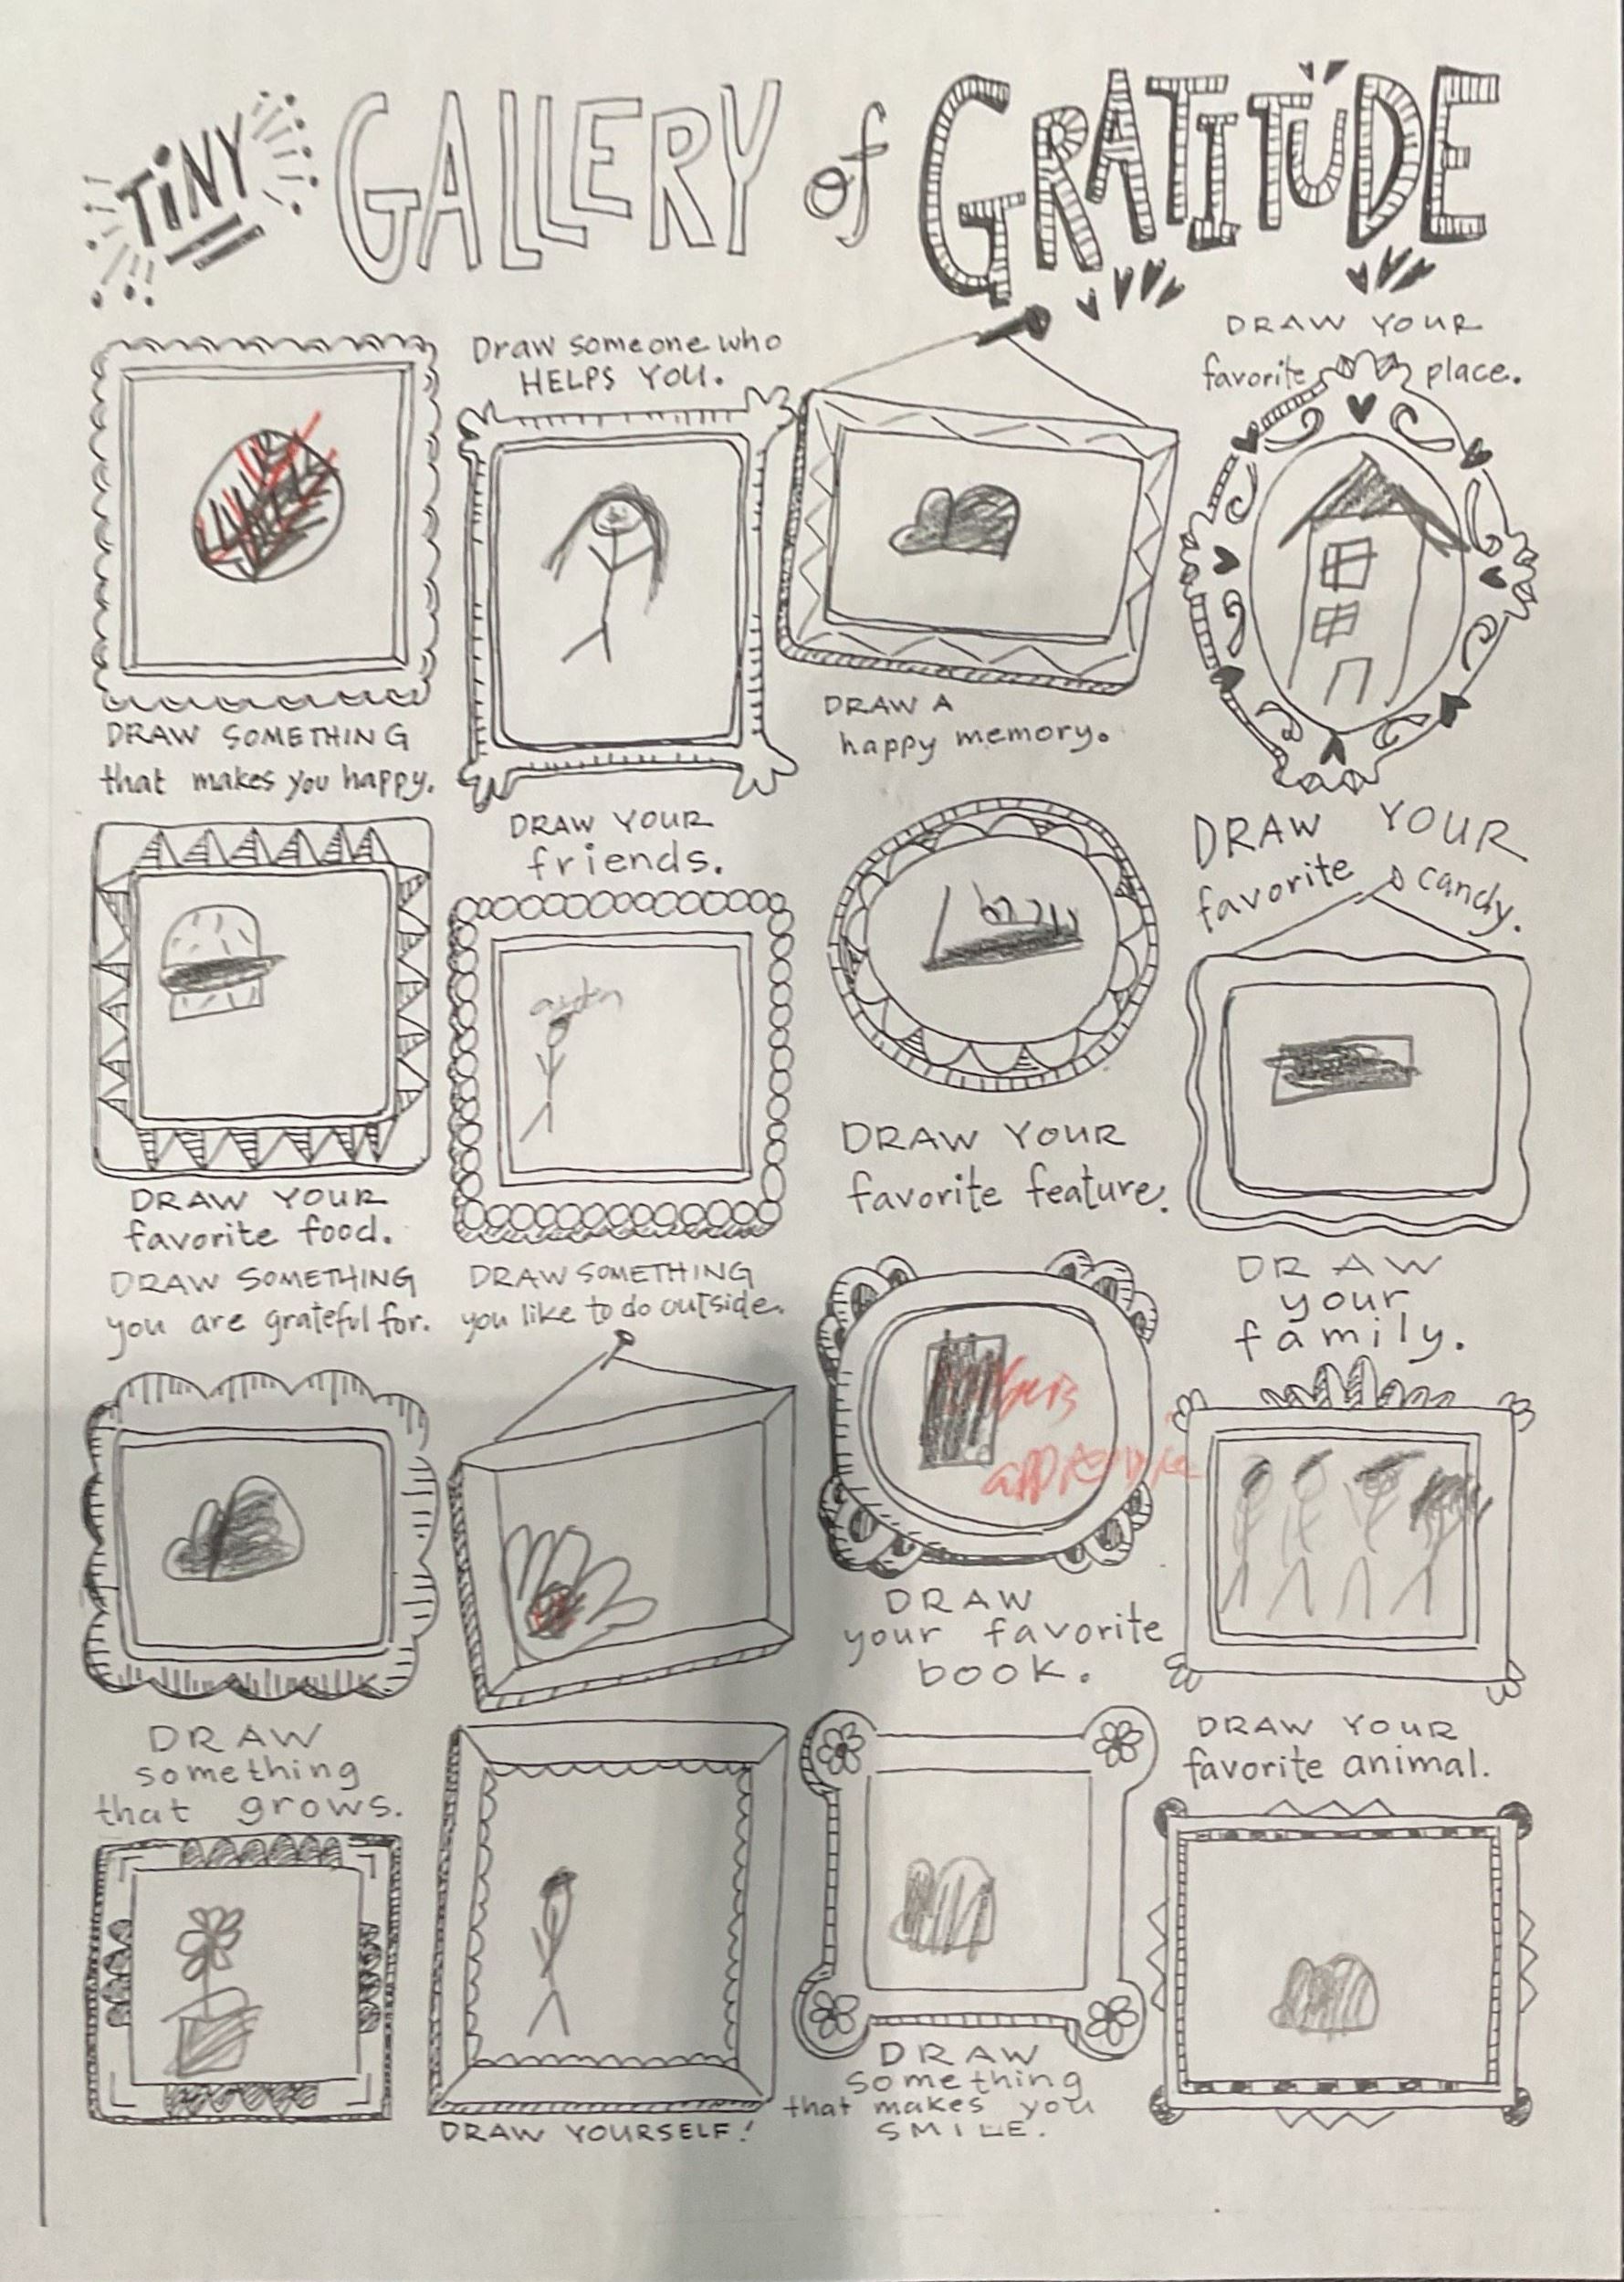 TINY GALLERY of GRATITUDE
DRAW SOMETHING
that makes you happy.
Draw someone who
HELPS YOU.
DRAW A
happy memory.
DRAW YOUR
favorite place.
DRAW YOUR
favorite food.
DRAW YOUR
friends.
DRAW YOUR
favorite feature.
DRAW YOUR
favorite candy.
DRAW SOMETHING
you are grateful for.
DRAW SOMETHING
you like to do outside.
DRAW
your favorite
book.
DRAW
your
family.
DRAW
something
that grows.
DRAW YOURSELF!
DRAW
something
that makes you
SMILE.
DRAW YOUR
favorite animal.